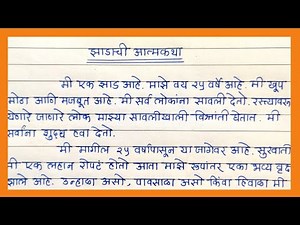 झाडाची आत्मकथा
मी एक झाड आहे. माझे वय २५ वर्षे आहे. मी खूप
मोठा आणि मजबूत आहे. मी सर्व लोकांना सावली देतो. रस्त्यावरून
येणारे जाणारे लोक माझ्या सावलीखाली विश्रांती घेतात. मी
सर्वांना शुद्ध हवा देतो.
मी मागील २५ वर्षापासून या जागेवर आहे. सुरुवातीला
मी एक लहान रोपटं होतो आता माझे रूपांतर एका भव्य वृक्षात
झाले आहे. उन्हाळा असो, पावसाळा असो किंवा हिवाळा मी